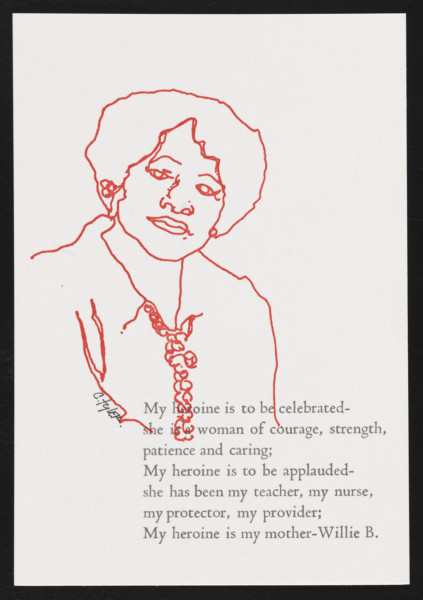 C. Tyler.
My heroine is to be celebrated-
she is a woman of courage, strength,
patience and caring;
My heroine is to be applauded-
she has been my teacher, my nurse,
my protector, my provider;
My heroine is my mother-Willie B.